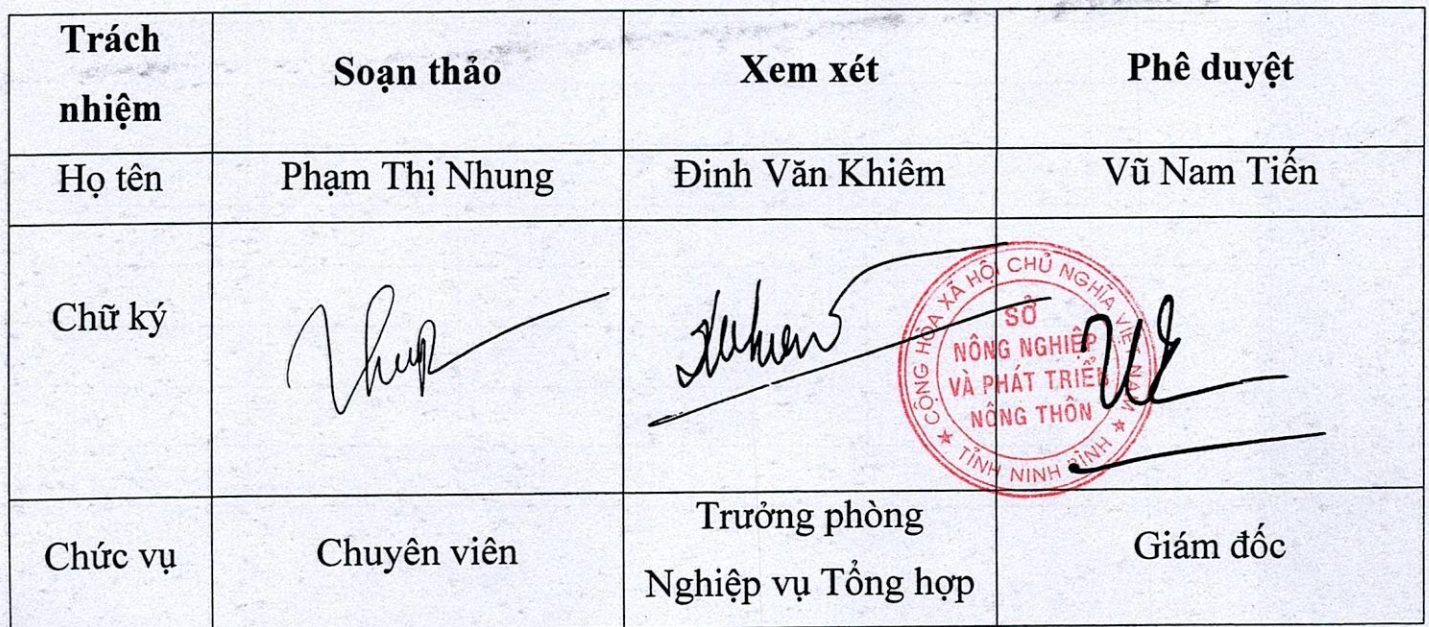 Trách nhiệm Soạn thảo Xem xét Phê duyệt
Họ tên Phạm Thị Nhung Đinh Văn Khiêm Vũ Nam Tiến
Chữ ký
CỘNG HÒA XÃ HỘI CHỦ NGHĨA VIỆT NAM
SỞ
NÔNG NGHIỆP
VÀ PHÁT TRIỂN
NÔNG THÔN
TỈNH NINH BÌNH
Chức vụ Chuyên viên Trưởng phòng Nghiệp vụ Tổng hợp Giám đốc